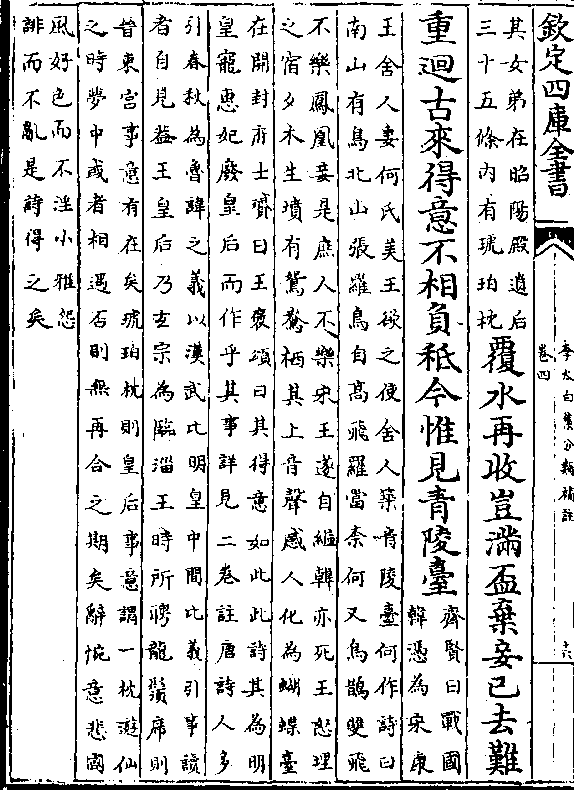 欽定四庫全書
李太白集分類補註
卷四
六
其女弟在昭陽殿遺后
三十五條内有琥珀枕
覆水再收豈滿盃棄妾已去難
重廻古來得意不相負秖今惟見青陵臺
齊賢曰戰國
韓憑為宋康
王舍人妻何氏美王欲之使舍人築青陵臺何作詩曰
南山有鳥北山張羅鳥自髙飛羅當奈何又烏鵲雙飛
不樂鳳凰妾是庶人不樂宋王遂自縊韓亦死王怒埋
之宿夕木生墳有鴛鴦栖其上音聲感人化為蝴蝶臺
在開封府士贇曰王褒頌曰其得意如此此詩其為明
皇寵惠妃廢皇后而作乎其事詳見二卷註唐詩人多
引春秋為魯諱之義以漢武比明皇中間比義引事讀
者自見葢王皇后乃𤣥宗為臨淄王時所聘龍鬚席則
昔東宫事意有在矣琥珀枕則皇后事意謂一枕遊仙
之時夢中或者相遇否則無再合之期矣辭惋意悲國
風好色而不淫小雅怨
誹而不亂是詩得之矣